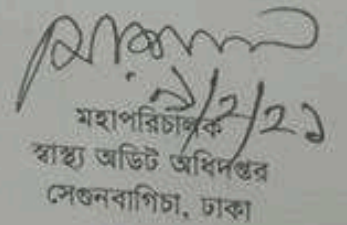 ৯/২/২১
মহাপরিচালক
স্বাস্থ্য অডিট অধিদপ্তর
সেগুনবাগিচা, ঢাকা